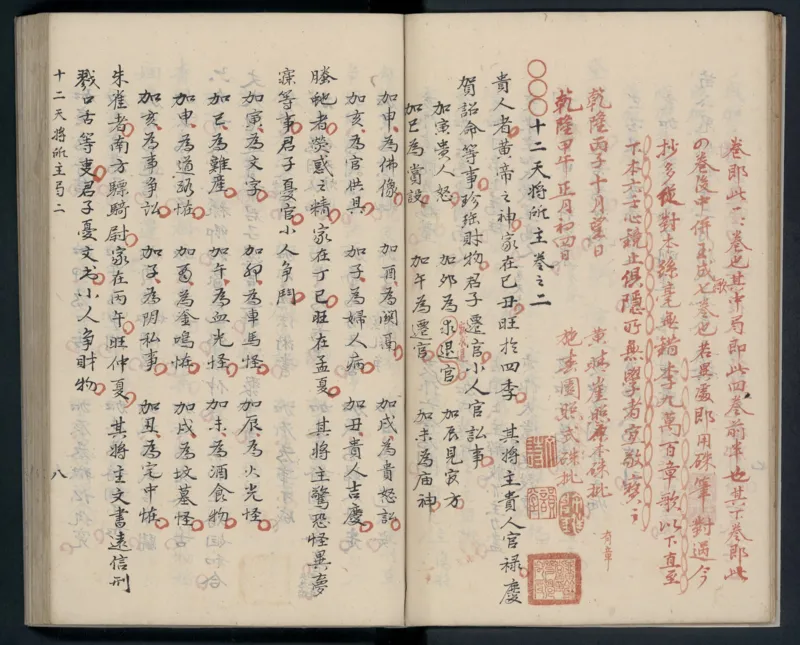 卷即此一二卷也其中局即此四卷前半也其下卷即此
四卷後中併五成七卷也若異處即用硃筆對過今
歌
抄多從對本絲毫無錯李九萬百章歌以下直至
下本六壬心鏡止俱隱而無學者宜敬寶之
乾隆丙子十月望日
乾隆甲午正月初四日
十二天將所主卷之二
貴人者黄帝之神家在已丑旺於四季 其將主貴人官祿慶
賀詔命等事珍珠財物君子遷官小人官訟事
加寅貴人怒 加邜為退官 加辰見官方
加已為賞設 加午為遷官 加未為庙神
加申為佛像 加酉為鬪鬲 加戌為貴怒訟
加亥為官供具 加子為婦人病 加丑貴人吉慶
螣虵者熒惑之精家在丁已旺在孟夏 其將主驚恐怪異夢
寐等事君子憂官小人争鬥
加寅為文字 加邜為車馬怪 加辰為火光怪
加已為難産 加午為血光怪 加未為酒食物
加申為道路怪 加酉為金鳴怪 加戌為墳墓怪
加亥為事争訟 加子為阴私事 加丑為宅中怪
朱雀者南方驃騎尉家在丙午旺仲夏 其將主文書遠信刑
戮口舌等事君子憂文书小人争財物
十二天將所主弓二 八